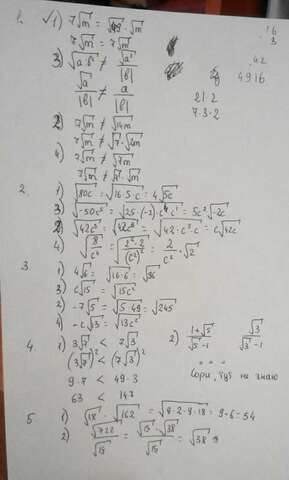 1. √1) 7√m = √49 · √m
7√m = 7√m
3) √a·b² ≠ √a² / |b|
√a / |b| ≠ a / |b|
2) 7√m ≠ √14m
7√m ≠ √7 · √2m
4) 7√m ≠ √7m
7√m ≠ √7 · √m
16
3
42
4916
21 2
7·3·2
2. 1) √80c = √16·5·c = 4√5c
3) √-50c⁵ = √25·(-2)·c⁴·c¹ = 5c²√-2c
2) √42c³ = √42c³ = √42·c²·c = c√42c
4) √8/c² = √2²·2/(c)² = 2/c · √2
3. 1) 4√6 = √16·6 = √96
3) c√15 = √15c²
2) -7√5 = √5·49 = √245
4) -c√13 = √13c²
4. 1) 3√7 < 7√3
(3√7)² < (7√3)²
9·7 < 49·3
63 < 147
2) 1+√5 / √5-1 √3 / √3-1
Сори, тут не знаю
5. 1) √18 · √162 = √9·2·9·18 = 9·6 = 54
2) √722 / √19 = √19·√38 / √19 = √38